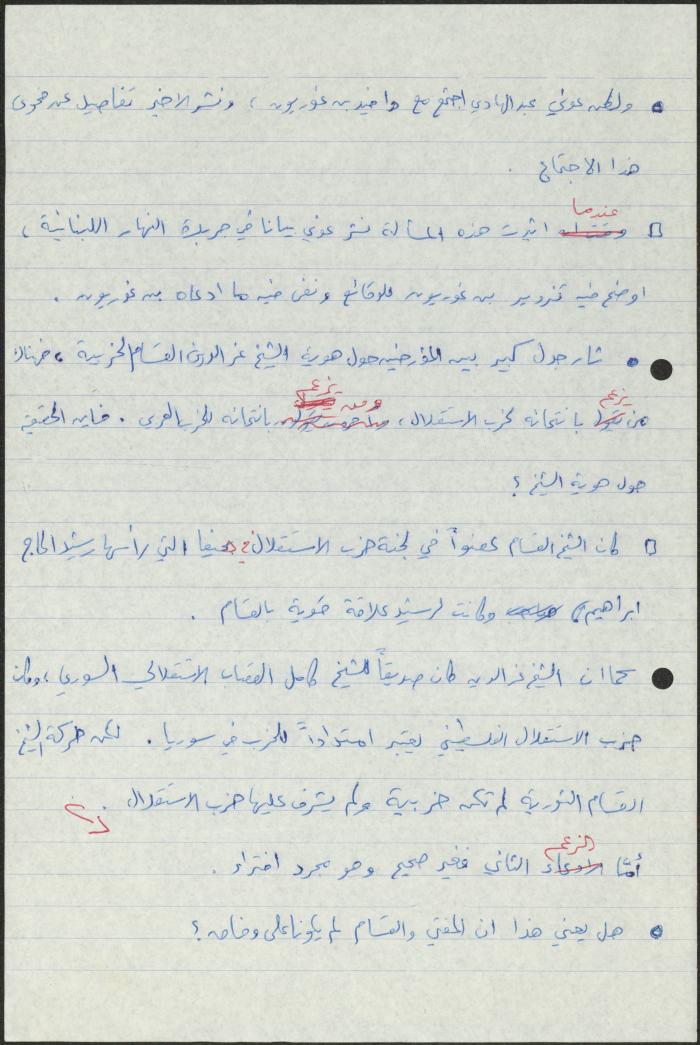 • ولكن عوني عبد الهادي اجتمع مع دافيد بن غوريون ، ونشر الاخير تفاصيل عن فحوى
هذا الاجتماع .
عندما
□ اثيرت هذه المسألة نشر عوني بيانا في جريدة النهار اللبنانية ،
اوضح فيه تزوير بن غوريون للوقائع ونفى فيه ما ادعاه بن غوريون .
• ثار جدل كبير بين المؤرخين حول هوية الشيخ عز الدين القسام الحزبية ، فهناك
يزعم ومن يزعم
من بانتمائه لحزب الاستقلال ، بانتمائه للحزب العربي . فأين الحقيقة
حول هوية الشيخ ؟
□ كان الشيخ القسام عضواً في لجنة حزب الاستقلال في حيفا التي رأسها رشيد الحاج
ابراهيم ، وكانت لرشيد علاقة قوية بالقسام .
كما ان الشيخ عز الدين كان صديقاً للشيخ كامل القصاب الاستقلالي السوري ، وكان
حزب الاستقلال الفلسطيني يعتبر امتداداً للحزب في سوريا . لكن حركة الشيخ
القسام الثورية لم تكن حزبية ولم يشرف عليها حزب الاستقلال .
الزعم
أمّا الادعاء الثاني فغير صحيح وهو مجرد افتراء .
• هل يعني هذا ان المفتي والقسام لم يكونا على وفاق ؟